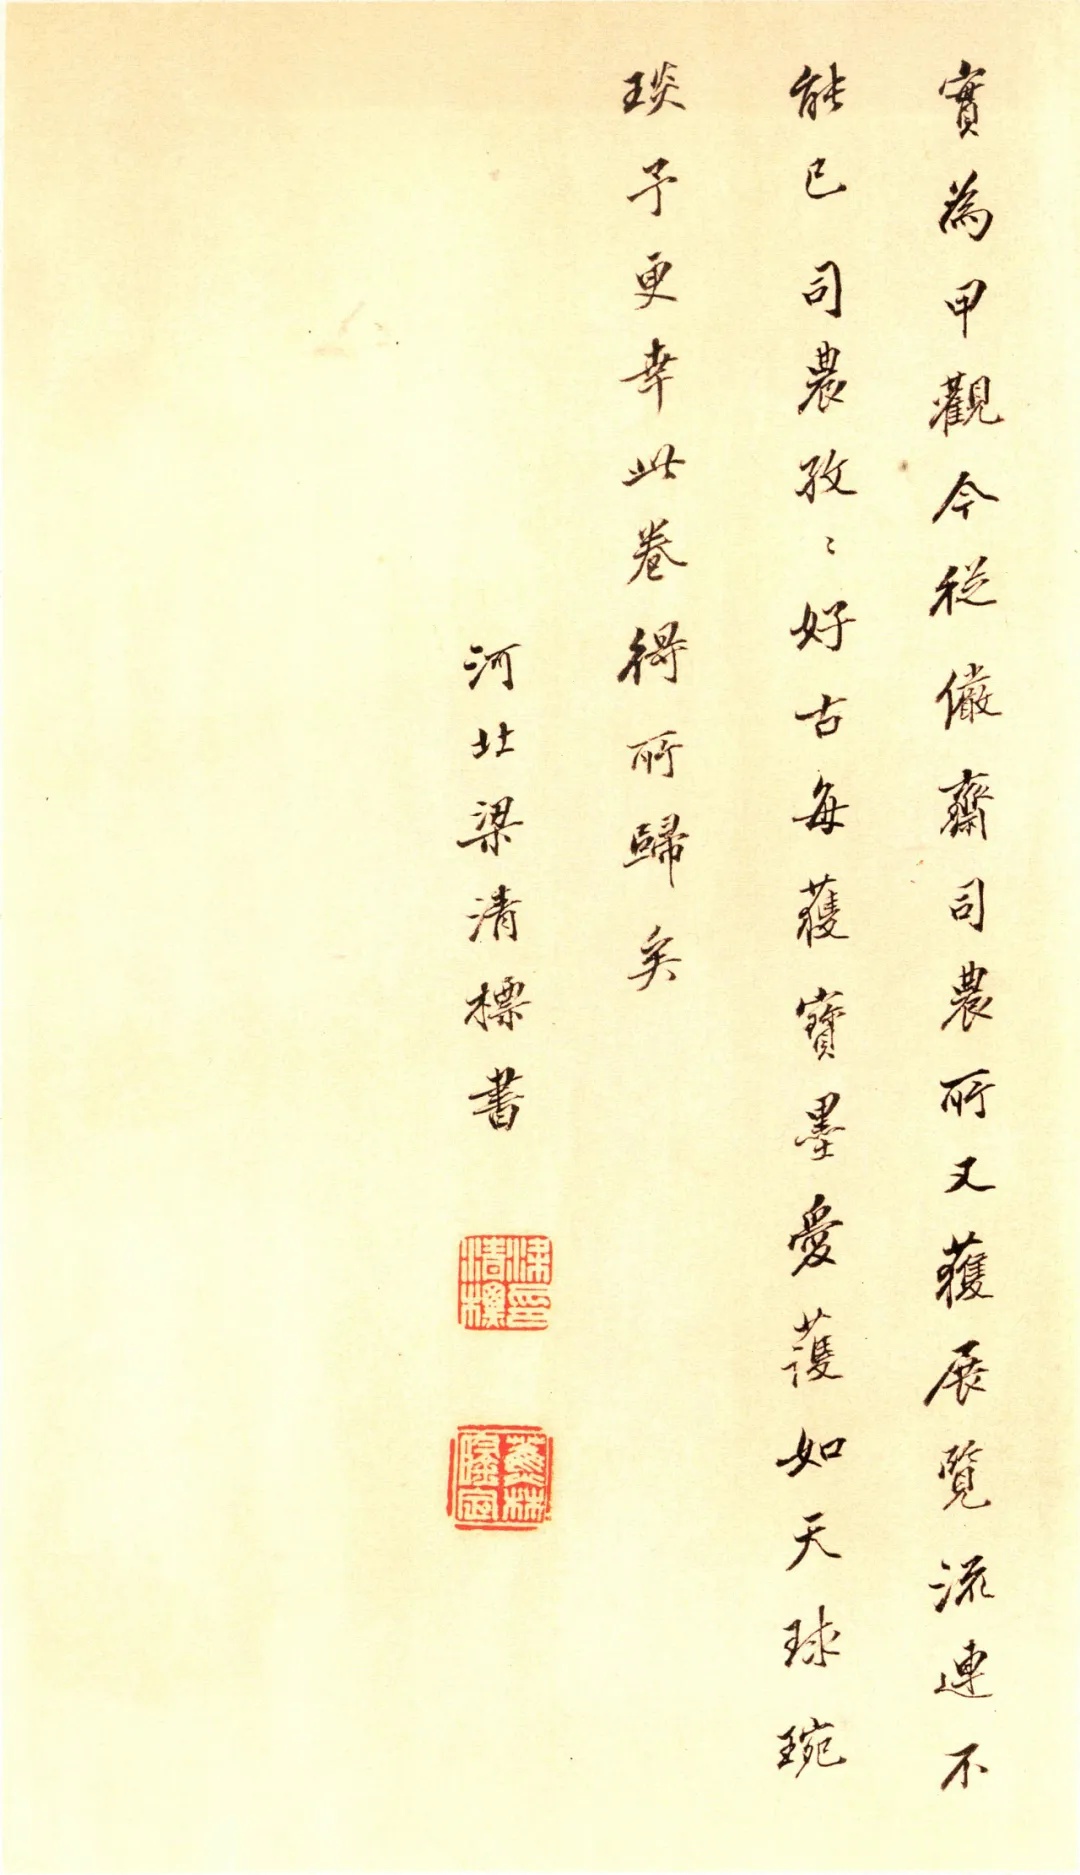 實為甲觀今從儼齋司農所又獲展覽流連不
能已司農孜〻好古每獲寶墨愛護如天球琬
琰予更幸此卷得所歸矣
河北梁清標書
梁清標印
蕉林